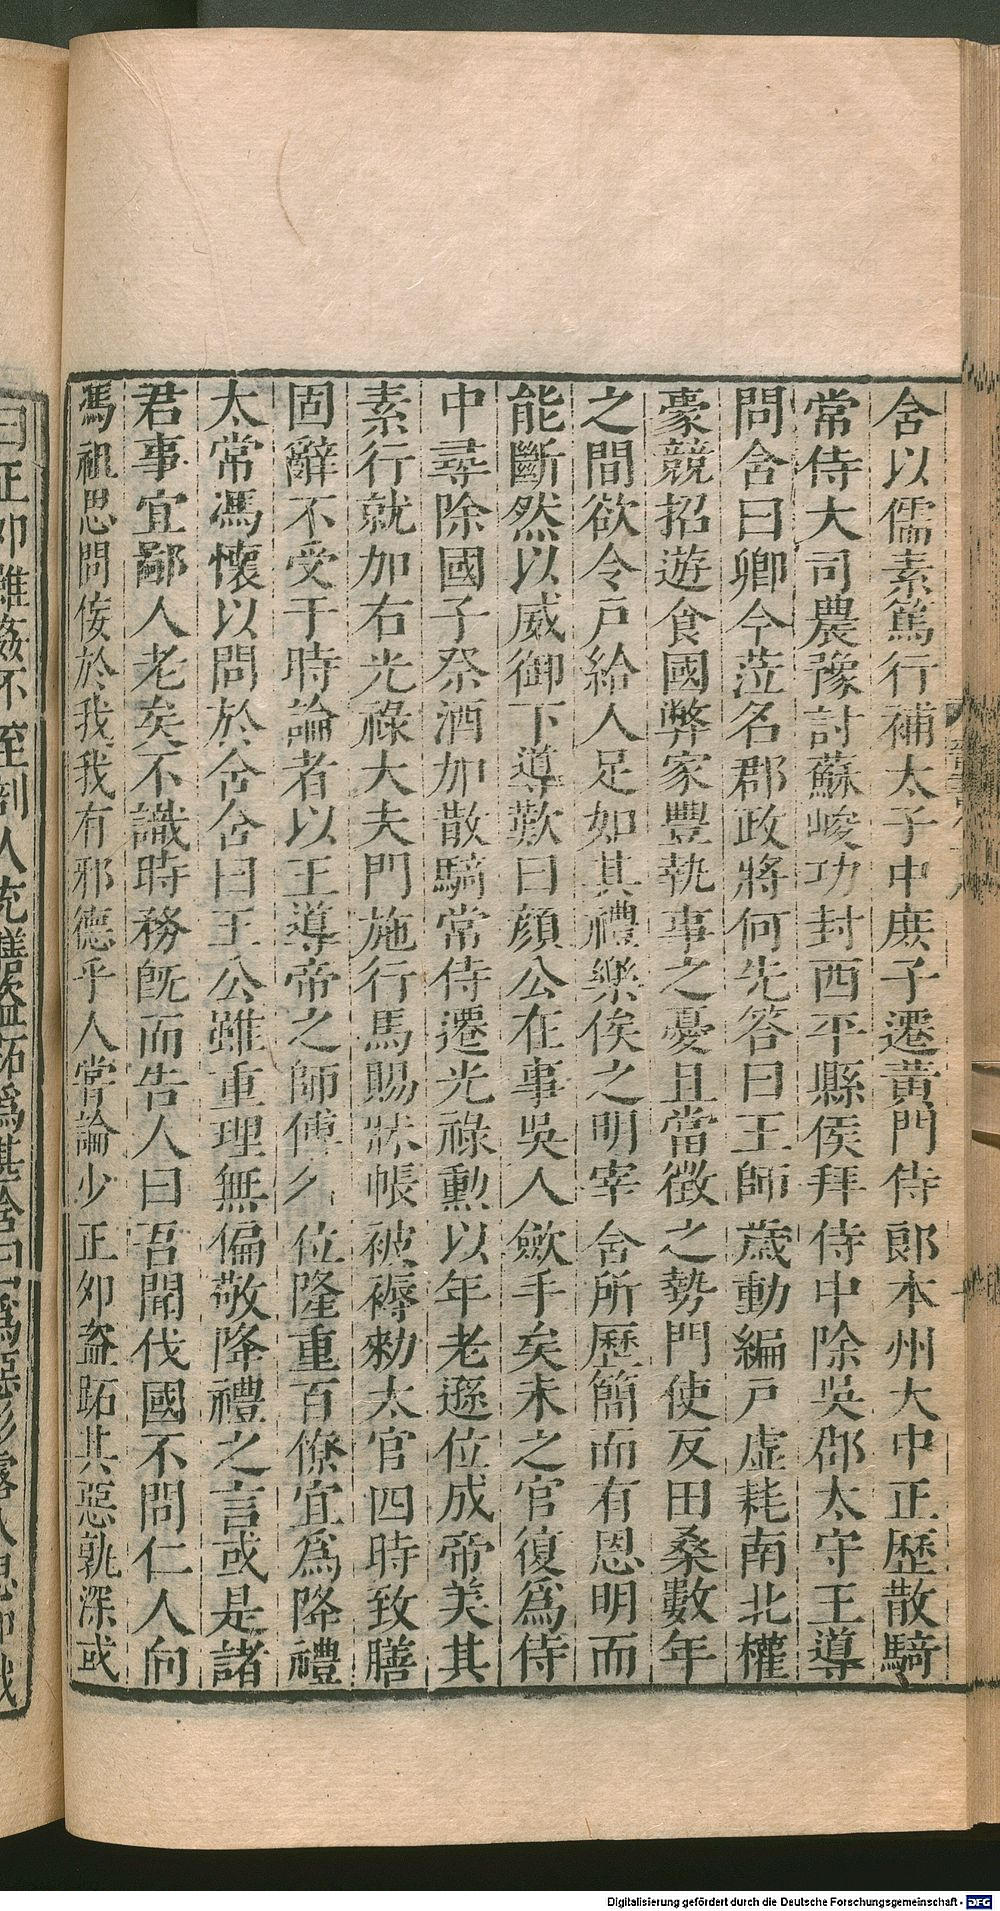 含以儒素篤行補太子中庶子遷黃門侍郎本州大中正歷散騎
常侍大司農豫討蘇峻功封西平縣侯拜侍中除吳郡太守王導
問含曰卿今蒞名郡政將何先答曰王師歲動編戶虛耗南北權
豪競招遊食國弊家豐執事之憂且當徵之勢門使反田桑數年
之間欲令戶給人足如其禮樂俟之明宰含所歷簡而有恩明而
能斷然以威御下導歎曰顏公在事吳人斂手矣未之官復爲侍
中尋除國子祭酒加散騎常侍遷光祿勲以年老遜位成帝美其
素行就加右光祿大夫門施行馬賜牀帳被褥勑太官四時致膳
固辭不受于時論者以王導帝之師傅名位隆重百僚宜爲降禮
太常馮懷以問於含含曰王公雖重理無偏敬降禮之言或是諸
君事宜鄙人老矣不識時務旣而告人曰吾聞伐國不問仁人向
馮祖思問佞於我我有邪德乎人嘗論少正夘盗跖其惡孰深或
曰正夘雖姦不至剖人充膳盗跖爲甚含曰爲惡彰露人思
Digitalisierung gefördert durch die Deutsche Forschungsgemeinschaft - DFG